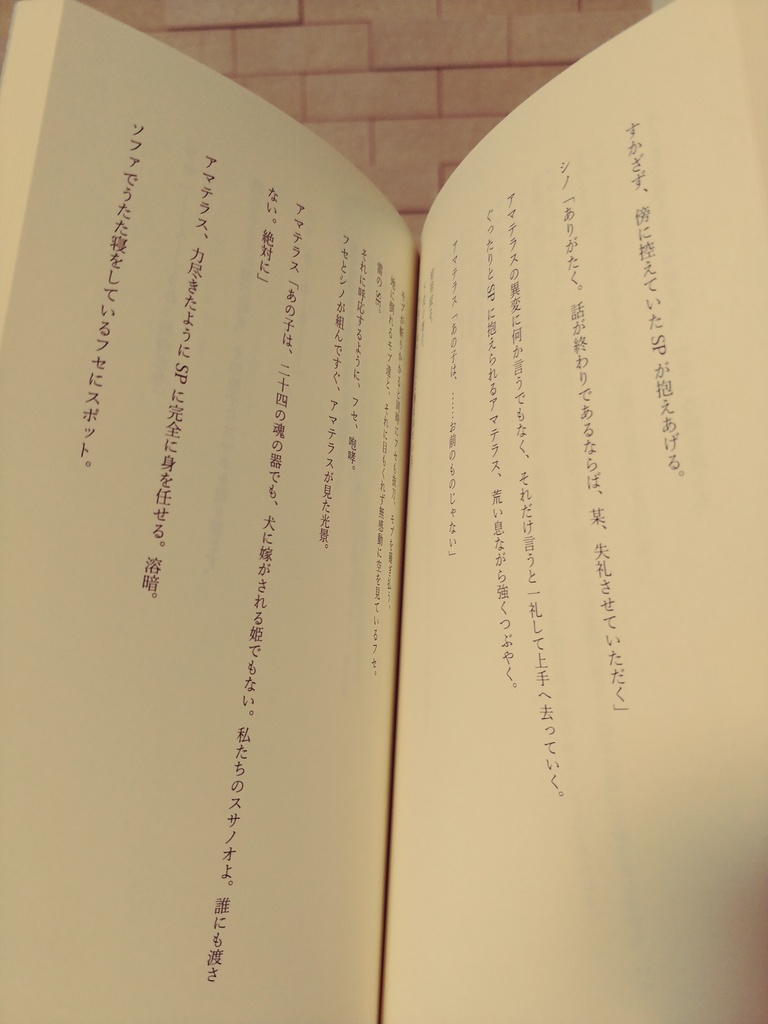 すかざず、傍に控えていた SP が抱えあげる。
シノ「ありがたく。話が終わりであるならば、某、失礼させていただく」
アマテラスの異変に何か言うでもなく、それだけ言うと一礼して上手へ去っていく。
ぐったりと SP に抱えられるアマテラス、荒い息ながら強くつぶやく。
アマテラス「あの子は、……お前のものじゃない」
と同時にフセも抜刀、モブを薙ぎ払う。
地に倒れるモブ達と、それに目もくれず無感動に空を見ているフセ。
雷の SE。
それに呼応するように、フセ、咆哮。
フセとシノが組んですぐ、アマテラスが見た光景。
アマテラス「あの子は、二十四の魂の器でも、犬に嫁がされる姫でもない。私たちのスサノオよ。誰にも渡さ
ない。絶対に」
アマテラス、力尽きたように SP に完全に身を任せる。溶暗。
ソファでうたた寝をしているフセにスポット。